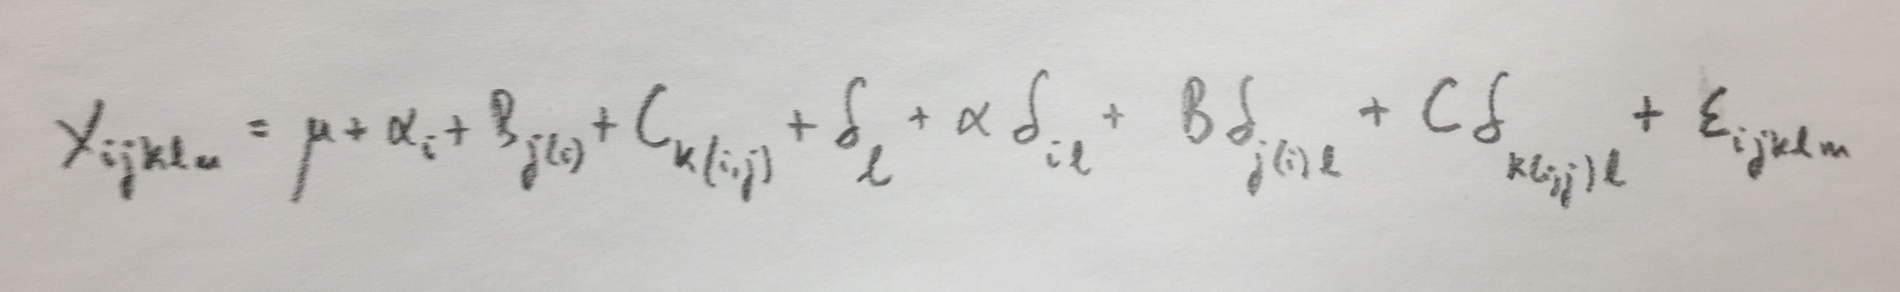 Y_{ijklm} = μ + α_i + B_{j(i)} + C_{k(i,j)} + δ_l + αδ_{il} + Bδ_{j(i)l} + Cδ_{k(i,j)l} + ε_{ijklm}